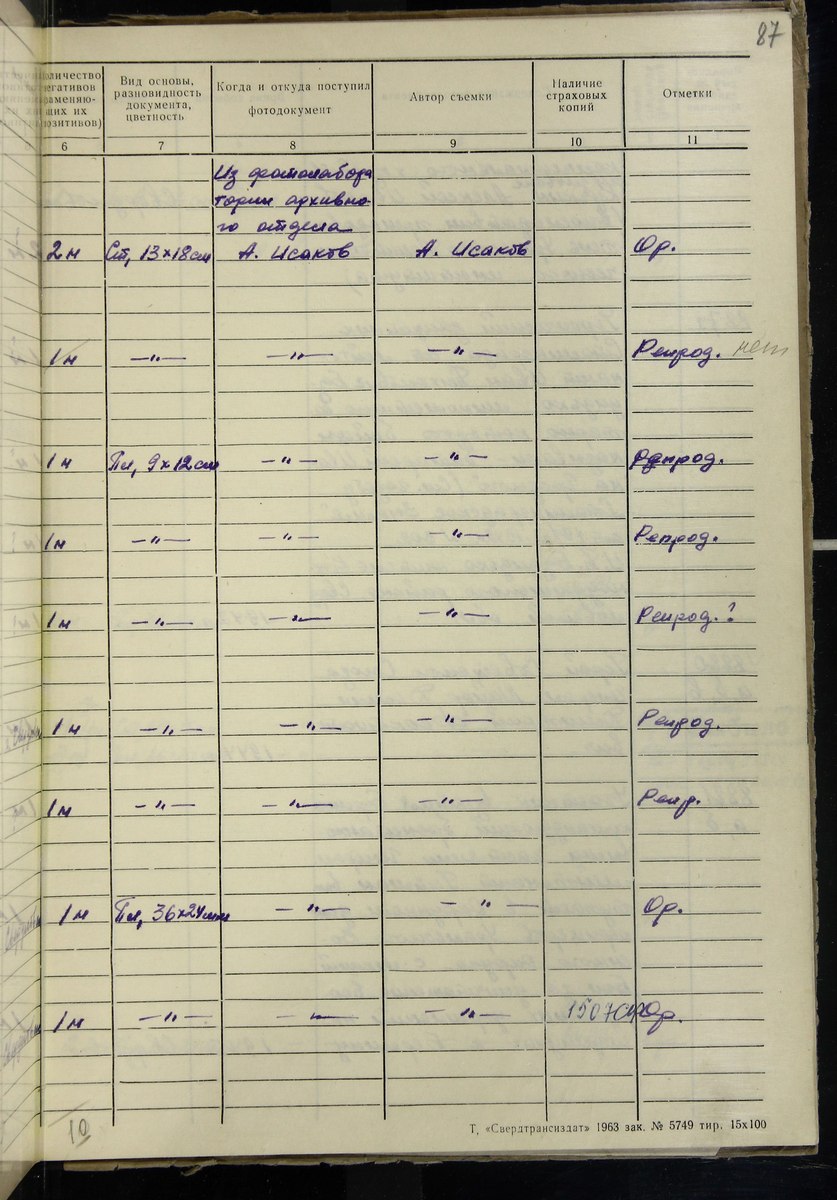 87
Количество негативов заменяющих их позитивов)
Вид основы, разновидность документа, цветность
Когда и откуда поступил фотодокумент
Автор съемки
Наличие страховых копий
Отметки
6 7 8 9 10 11
Из фотолабора
тории архивно-
го отдела
2 н Ст, 13×18 см А. Исаков А. Исаков Ор.
1 н —"— —"— —"— Репрод. нет
1 н Пл, 9×12 см —"— —"— Репрод.
1 н —"— —"— —"— Репрод.
1 н —"— —"— —"— Репрод. ?
1 н —"— —"— —"— Репрод.
1 н —"— —"— —"— Репр.
1 н Пл, 36×24 мм —"— —"— Ор.
1 н —"— —"— —"— 1507 Ор.
10
Т, «Свердтрансиздат» 1963 зак. № 5749 тир. 15х100